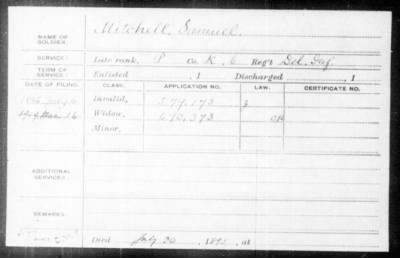 NAME OF SOLDIER: Mitchell, Samuel.
SERVICE: Late rank, P Co. K, 6 Reg't Del. Inf.
TERM OF SERVICE: Enlisted , 1 Discharged , 1
DATE OF FILING. CLASS. APPLICATION NO. LAW. CERTIFICATE NO.
1886 July 6 Invalid, 579,173
Widow, 610,373
Minor,
ADDITIONAL SERVICES:
REMARKS:
Died July 20, 1892, at